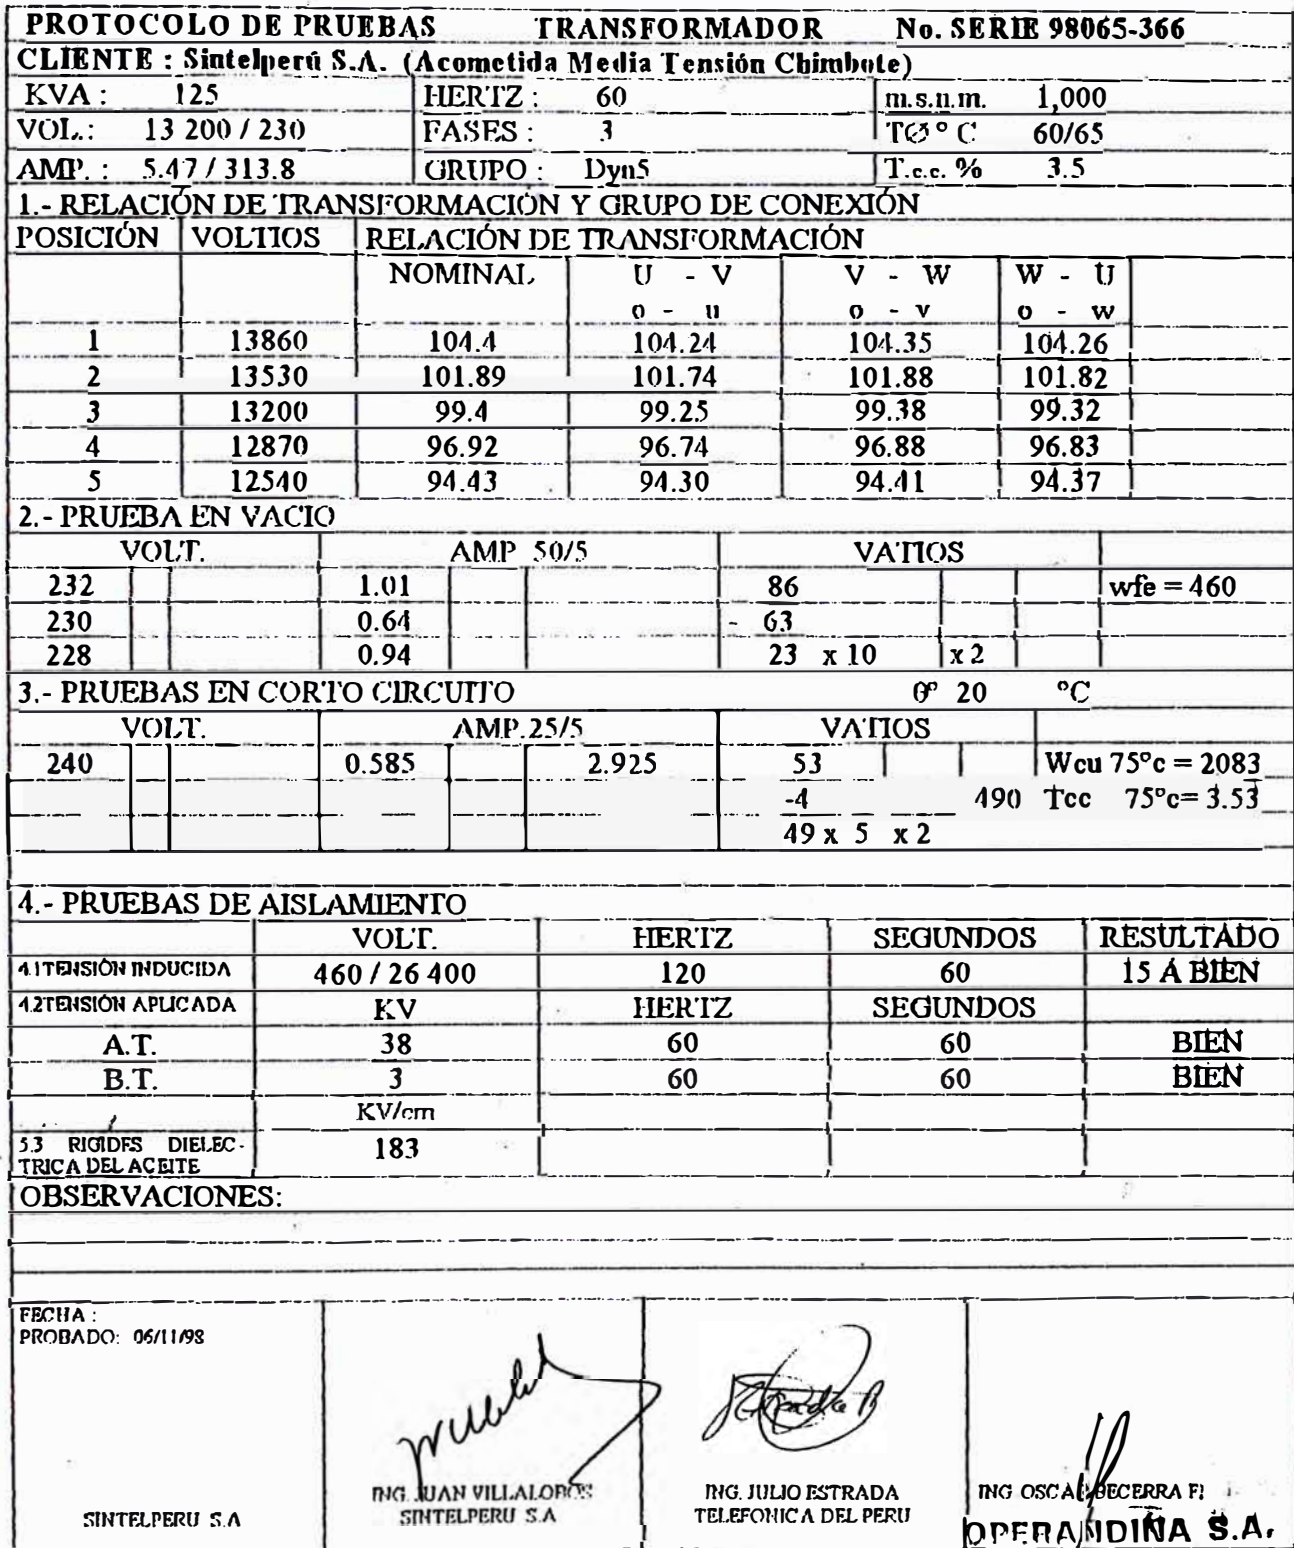 PROTOCOLO DE PRUEBAS TRANSFORMADOR No. SERIE 98065-366
CLIENTE : Sintelperú S.A. (Acometida Media Tensión Chimbote)
KVA : 125 HERTZ : 60 m.s.n.m. 1,000
VOL.: 13 200 / 230 FASES : 3 ° C 60/65
AMP. : 5.47 / 313.8 GRUPO : Dyn5 T.c.c. % 3.5
1.- RELACIÓN DE TRANSFORMACIÓN Y GRUPO DE CONEXIÓN
POSICIÓN VOLTIOS RELACIÓN DE TRANSFORMACIÓN
NOMINAL U - V V - W W - U
o - u o - v o - w
1 13860 104.4 104.24 104.35 104.26
2 13530 101.89 101.74 101.88 101.82
3 13200 99.4 99.25 99.38 99.32
4 12870 96.92 96.74 96.88 96.83
5 12540 94.43 94.30 94.41 94.37
2.- PRUEBA EN VACIO
VOLT. AMP 50/5 VATIOS
232 1.01 86 wfe = 460
230 0.64 - 63
228 0.94 23 x 10 x 2
3.- PRUEBAS EN CORTO CIRCUITO 0° 20 °C
VOLT. AMP.25/5 VATIOS
240 0.585 2.925 53 Wcu 75°c = 2083
-4 490 Tcc 75°c= 3.53
49 x 5 x 2
4.- PRUEBAS DE AISLAMIENTO
VOLT. HERTZ SEGUNDOS RESULTADO
4.1TENSIÓN INDUCIDA 460 / 26 400 120 60 15 A BIEN
4.2TENSIÓN APLICADA KV HERTZ SEGUNDOS
A.T. 38 60 60 BIEN
B.T. 3 60 60 BIEN
KV/cm
5.3 RIGIDES DIELEC- 183
TRICA DEL ACEITE
OBSERVACIONES:
FECHA :
PROBADO: 06/11/98
ING. JUAN VILLALOBOS ING. JULIO ESTRADA ING OSCAR BECERRA
SINTELPERU S.A SINTELPERU S.A TELEFONICA DEL PERU
OPERANDINA S.A.